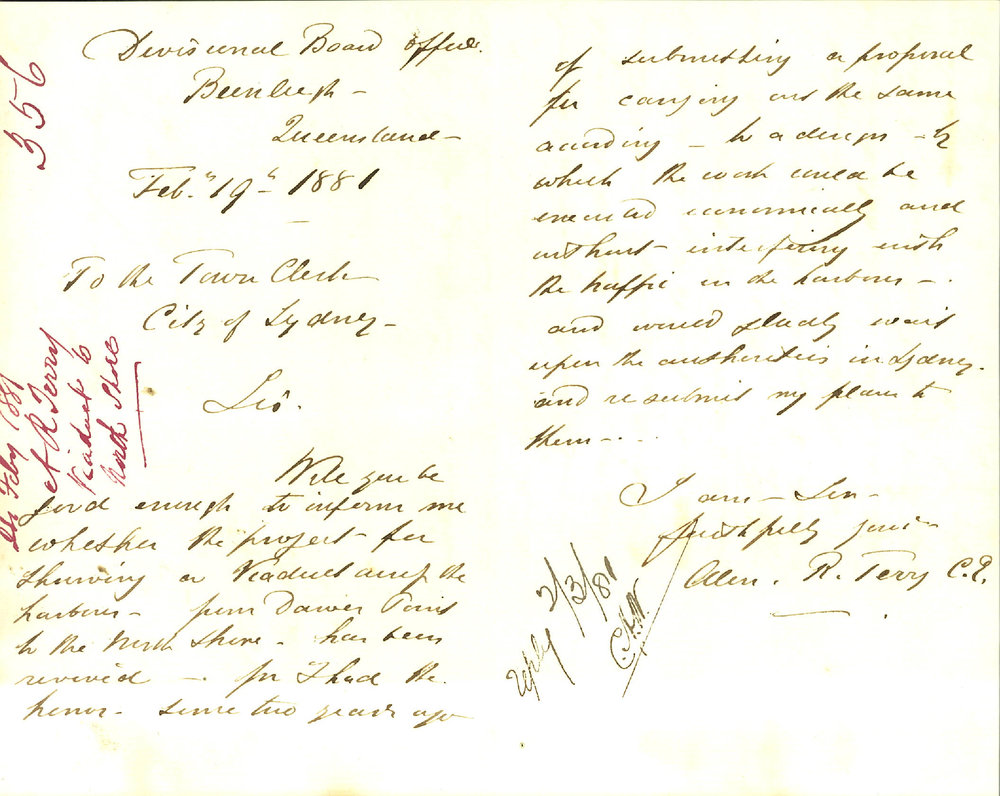 356
24 Feby 1881
A R Terry
Viaduct to
North Shore
Divisional Board Office.
Beenleigh -
Queensland -
Feb. 19th 1881
To the Town Clerk
City of Sydney -
Sir.
Will you be
good enough to inform me
whether the project for
throwing a Viaduct across the
harbour - from Dawes Point
to the North Shore - has been
revived - for I had the
honor - some two years ago
of submitting a proposal
for carrying out the same
according - to a design - by
which the work could be
executed economically and
without interfering with
the traffic in the harbour -.
and would gladly wait
upon the authorities in Sydney.
and resubmit my plans to
them - . . .
I am - Sir -
faithfully yours
Alen. R. Terry C.E.
Reply 2/3/81